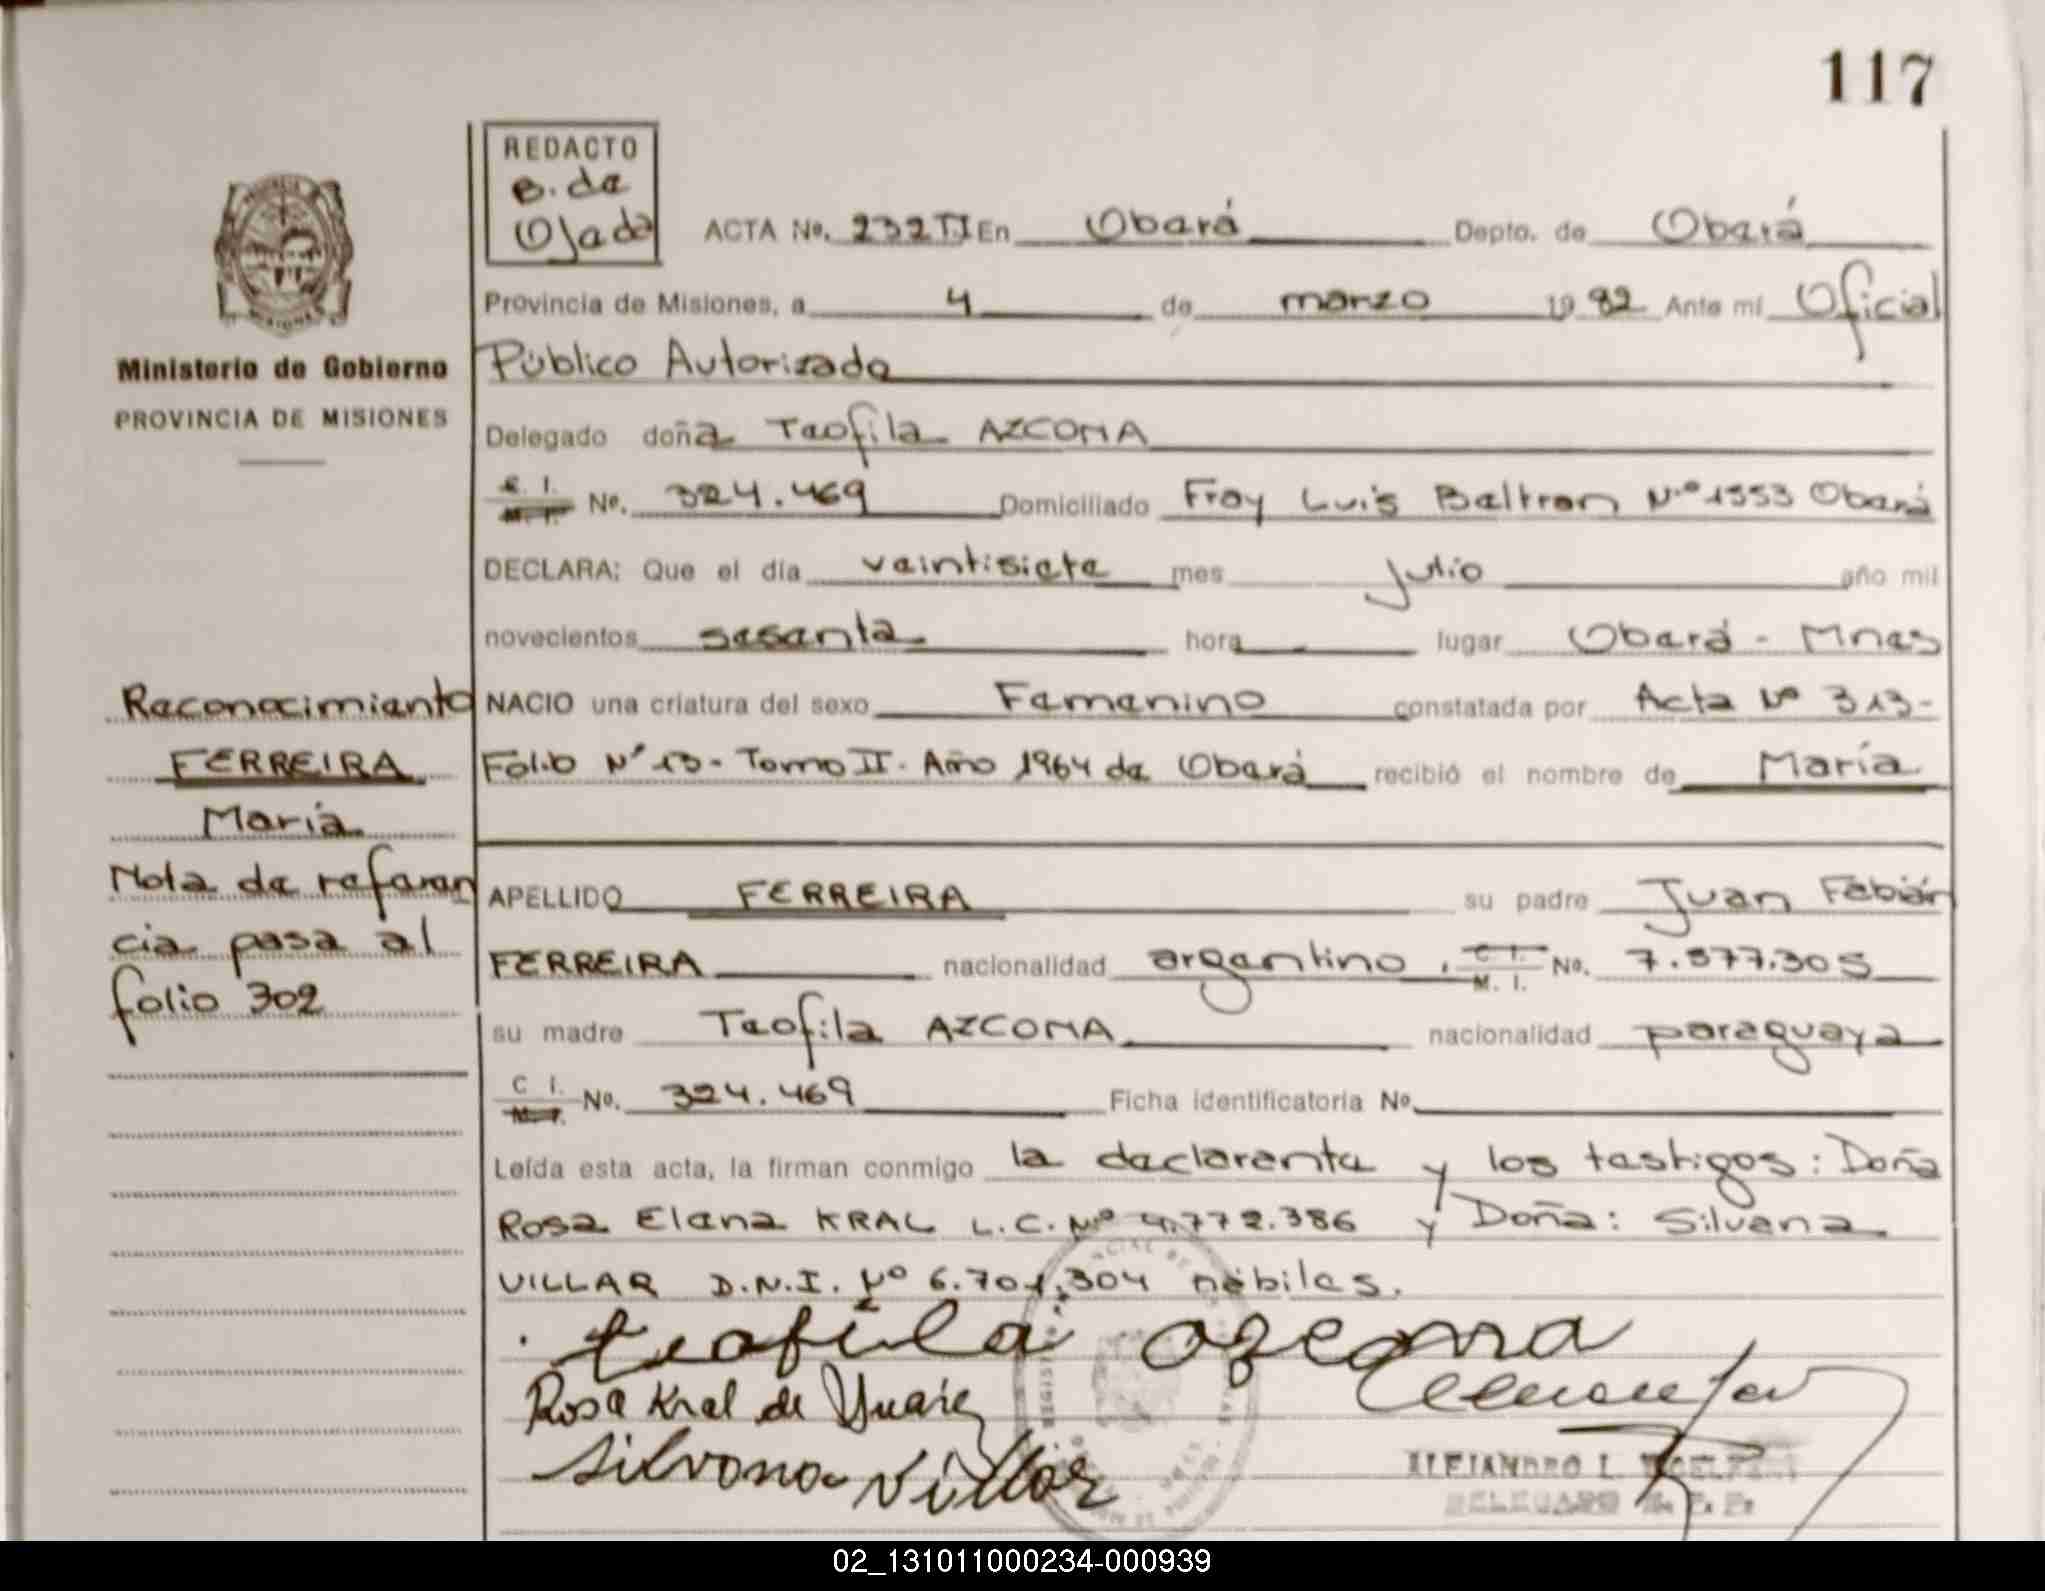 117
REDACTO
B. de
Ojeda
ACTA No. 232TI En Oberá Depto. de Oberá
Provincia de Misiones, a 4 de marzo 1982 Ante mí Oficial
Público Autorizado
Delegado doña Teofila AZCONA
C. I. M. I. No. 324.469 Domiciliado Fray Luis Beltran N.º 1553 Oberá
DECLARA: Que el día veintisiete mes julio año mil
novecientos sesenta hora lugar Oberá - Mnes
NACIO una criatura del sexo Femenino constatada por Acta Nº 313-
Folio Nº 13- Tomo II. Año 1964 de Oberá recibió el nombre de María
APELLIDO FERREIRA su padre Juan Fabián
FERREIRA nacionalidad argentino. C. I. M. I. No. 7.577.305
su madre Teofila AZCONA nacionalidad paraguaya
C I. M. I. No. 324.469 Ficha identificatoria No.
Leída esta acta, la firman conmigo la declarante y los testigos: Doña
Rosa Elena KRAL L.C. Nº 4.772.386 y Doña: Silvana
VILLAR D.N.I. Nº 6.701.304 hábiles.
teofila azcona
Rosa Kral de
Silvana Villar
ALEJANDRO L.
DELEGADO
Ministerio de Gobierno
PROVINCIA DE MISIONES
Reconocimiento
FERREIRA
María
Nota de referen
cia pasa al
folio 302
02_131011000234-000939